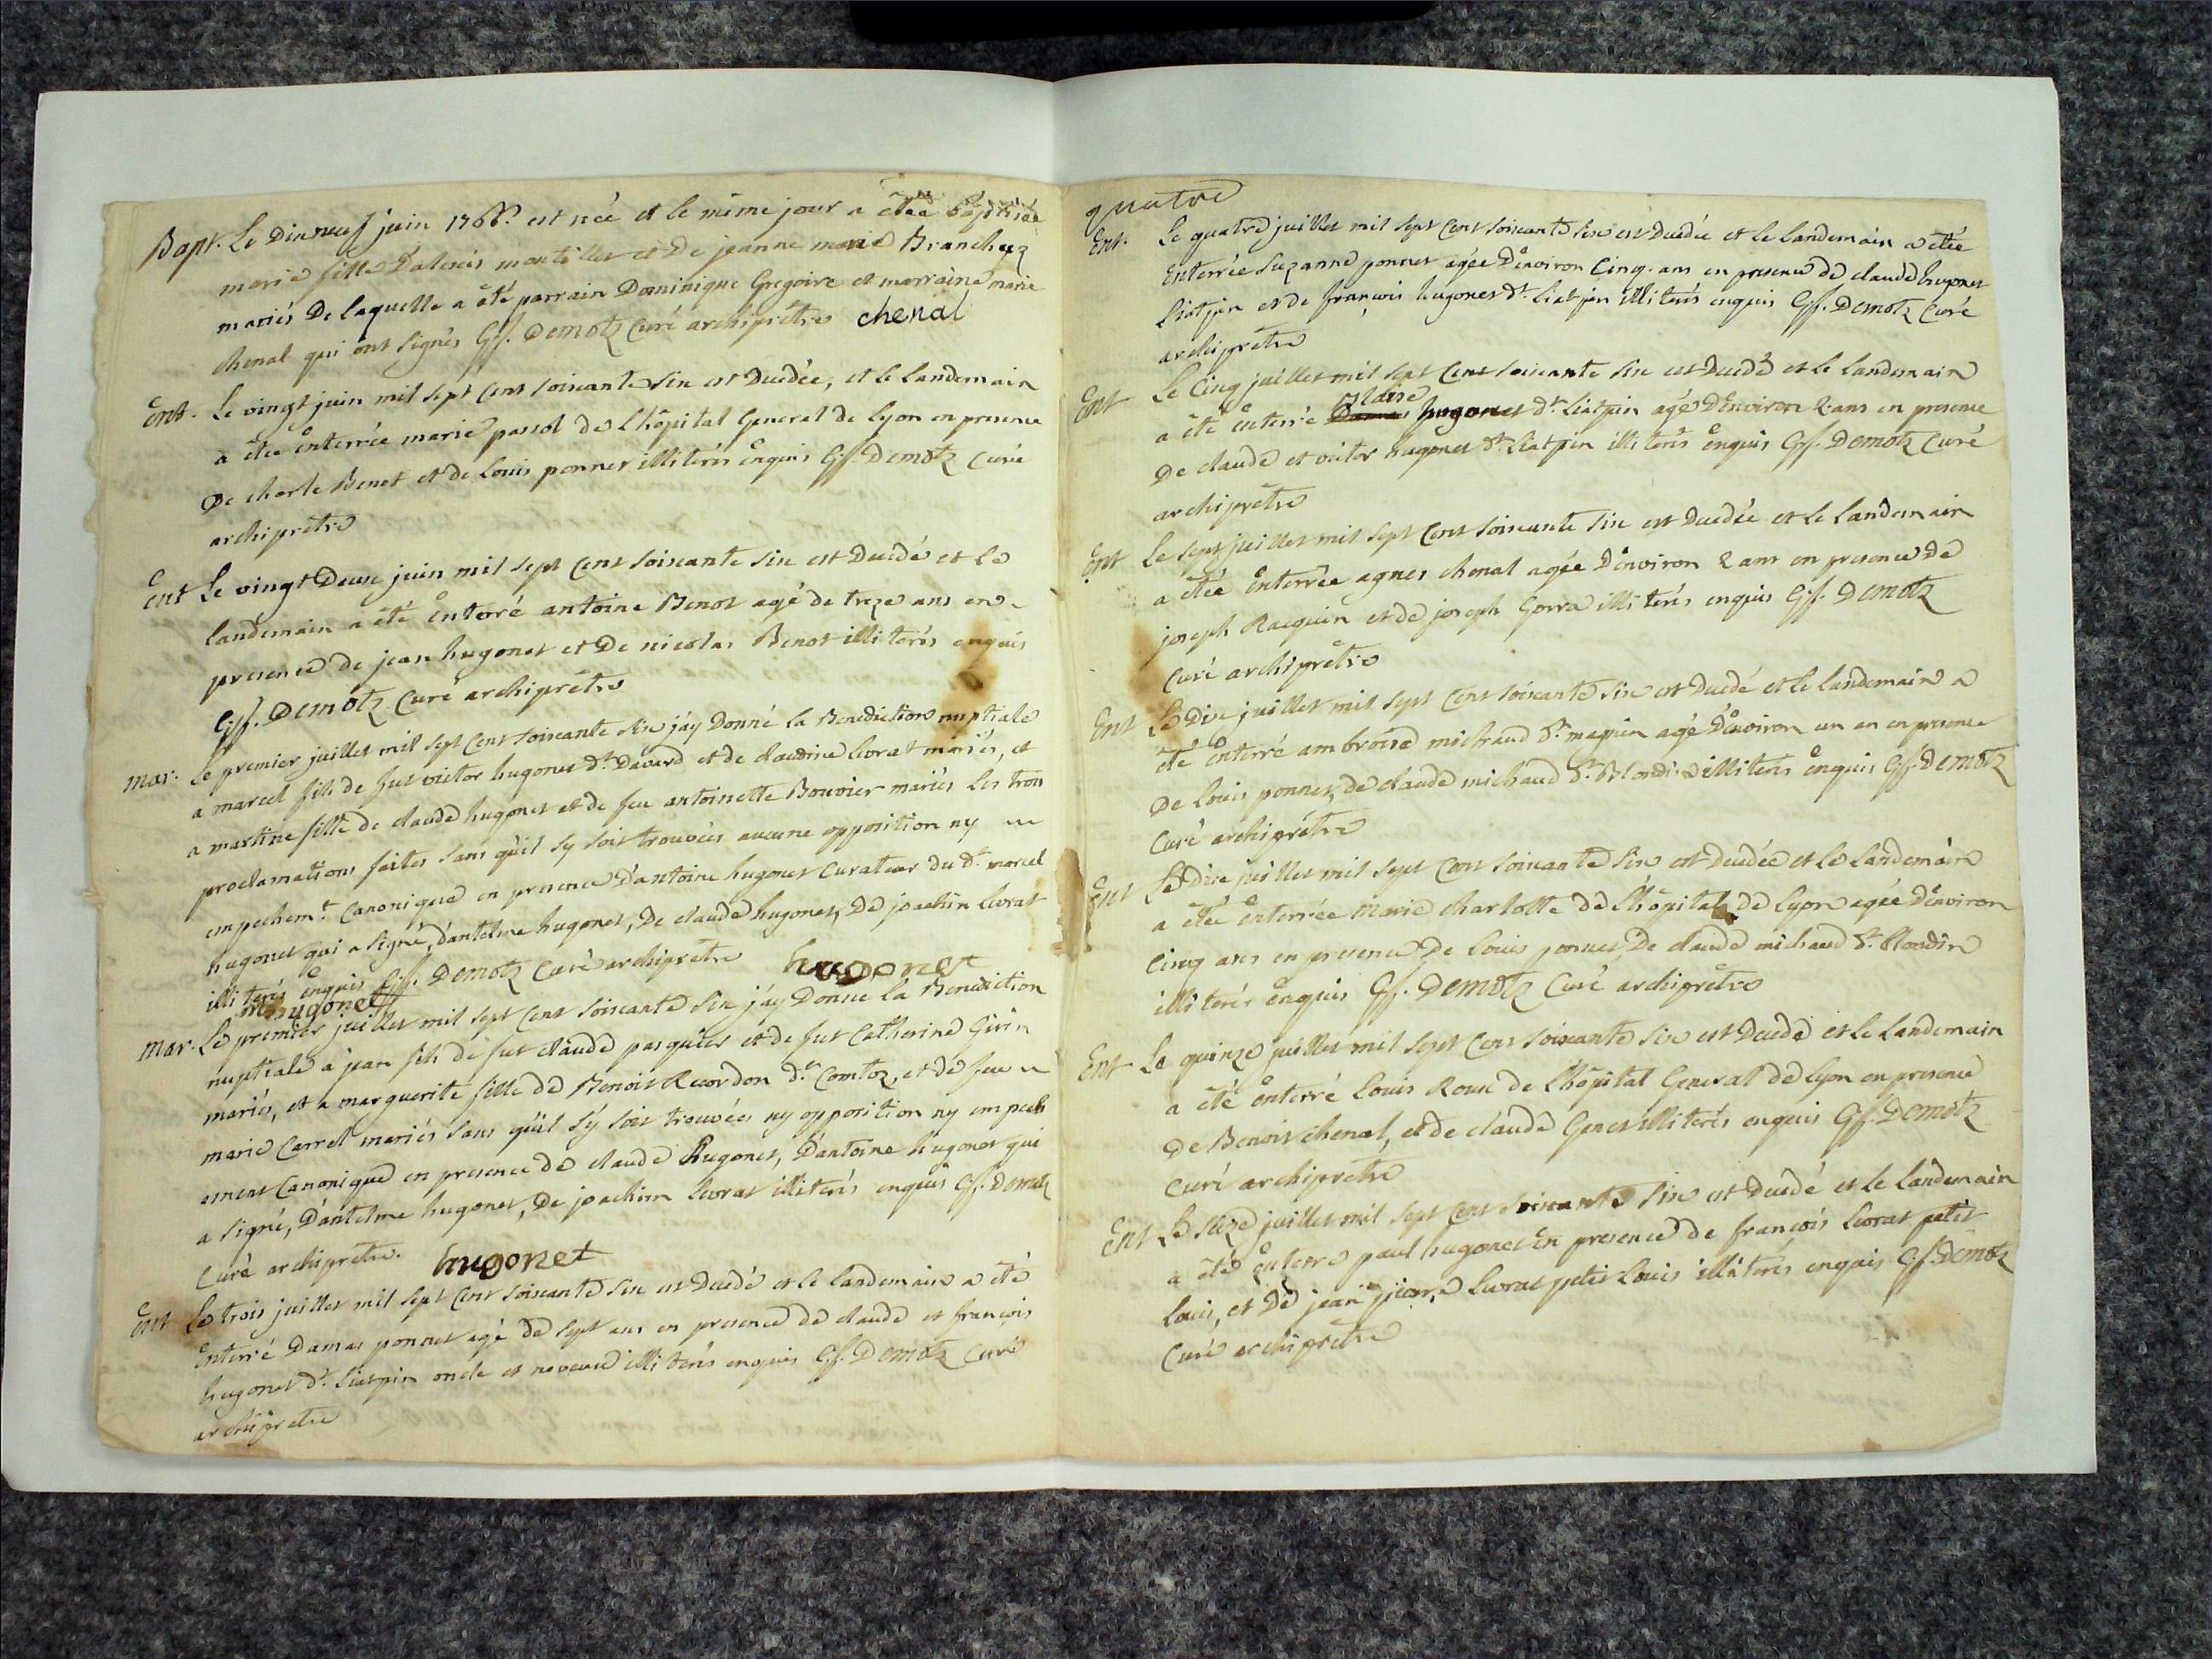 Bapt. Le Dixneuf juin 1766. est née et le même jour a étée báptisée
marie fille D'alexis montillet et De jeanne marie Branchuz
mariés De laquelle a été parrain Dominique Gregoire et marraine marie
chenal qui ont signés Gff. Demotz Curé archiprêtre chenal
Ent. Le vingt juin mil sept cent soixante six est Duedée, et le landemain
a étée enterrée marie passol de L'hôpital General de Lyon en presence
De charle Benot et de Louis ponnet illiterés enquis Gff. Demotz Curé
archiprêtre
Ent Le vingt Deux juin mil sept cent soixante six est Duedé et le
landemain a été enterré antoine Benot agé de treze ans en
presence de jean hugonet et De nicolas Benot illiterés enquis
Gff. Demotz Curé archiprêtre
mar. Le premier juillet mil sept cent soixante six j'ay Donné la Benediction nuptiale
a marcel fils de fut victor hugonet dt. Davard et de claudine livrat mariés, et
a martine fille de claude hugonet et de feu antoinette Bouvier mariés les trois
proclamations faites sans qu'il sy soit trouvées aucune opposition ny
empechemt. Canonique en presence d'antoine hugonet Curateur du dt. marcel
hugonet qui a signé, d'antelme hugonet, De claude hugonet, De joachin livrat
illiterés enquis Gff. Demotz Curé archiprêtre hugonet
m hugonet
mar. Le premier juillet mil sept cent soixante six j'ay Donné la Benediction
nuptiale a jean fils de fut claude pasquier et de fut Catherine Girin
mariés, et a marguerite fille de Benoit Reverdon dt. Comtoz, et de feue
marie Carrel mariés sans qu'il s'y soit trouvées ny opposition ny empech
ement Canonique en presence de claude hugonet, D'antoine hugonet qui
a signé, D'antelme hugonet, De joachim livrat illiterés enquis Gff. Demotz
Curé archiprêtre. hugonet
Ent Le trois juillet mil sept cent soixante six est Duedé et le landemain a été
Enterré Damas ponnet agé de sept ans en presence de claude et françois
hugonet dt. Liatpin oncle et neveux illiterés enquis Gff. Demotz Curé
archiprêtre
quatre
Ent. Le quatre juillet mil sept cent soixante six est Duedée et le landemain a étée
Enterrée Suzanne ponnet agée D'environ Cinq ans en presence de claude hugonet
Liatpin et de françois hugonet dt. Liatpin illiterés enquis Gff. Demotz Curé
archiprêtre
Ent Le Cinq juillet mil sept Cent soixante six est Duedé et le landemain
a été enterré hugonet dt. Liatpin agé D'environ 2 ans en presence
De claude et victor hugonet dt. Liatpin illiterés enquis Gff. Demotz Curé
archiprêtre
Ent Le sept juillet mil sept Cent soixante six est Duedée et le landemain
a étée Enterrée agnes chenal agée D'environ 2 ans en presence De
joseph Racquin et de joseph Gorra illiterés enquis Gff. Demotz
Curé archiprêtre
Ent Le Dix juillet mil sept Cent soixante six est Duedé et le landemain a
été Enterré ambroise michaud dt. magnin agé D'environ un an en presence
De Louis ponnet, de claude michaud dt. Blondin illiterés enquis Gff. Demotz
Curé archiprêtre
Ent Le Dix juillet mil sept Cent soixante six est Duedée et le landemain
a étée enterrée Marie charlotte de L'hôpital de Lyon agée D'environ
cinq ans en presence De Louis ponnet, De claude michaud dt. Blondin
illiterés enquis Gff. Demotz Curé archiprêtre
Ent Le quinze juillet mil sept Cent soixante six est Duedé et le landemain
a été enterré Louis Roux de L'hôpital General de Lyon en presence
De Benoit chenal, et de claude Genet illiterés enquis Gff. Demotz
Curé archiprêtre
Ent Le Seize juillet mil sept Cent soixante six est Duedé et le landemain
a été Enterré paul hugonet En presence de françois livrat petit
Louis, et De jean pierre livrat petit Louis illiterés enquis Gff. Demotz
Curé archiprêtre